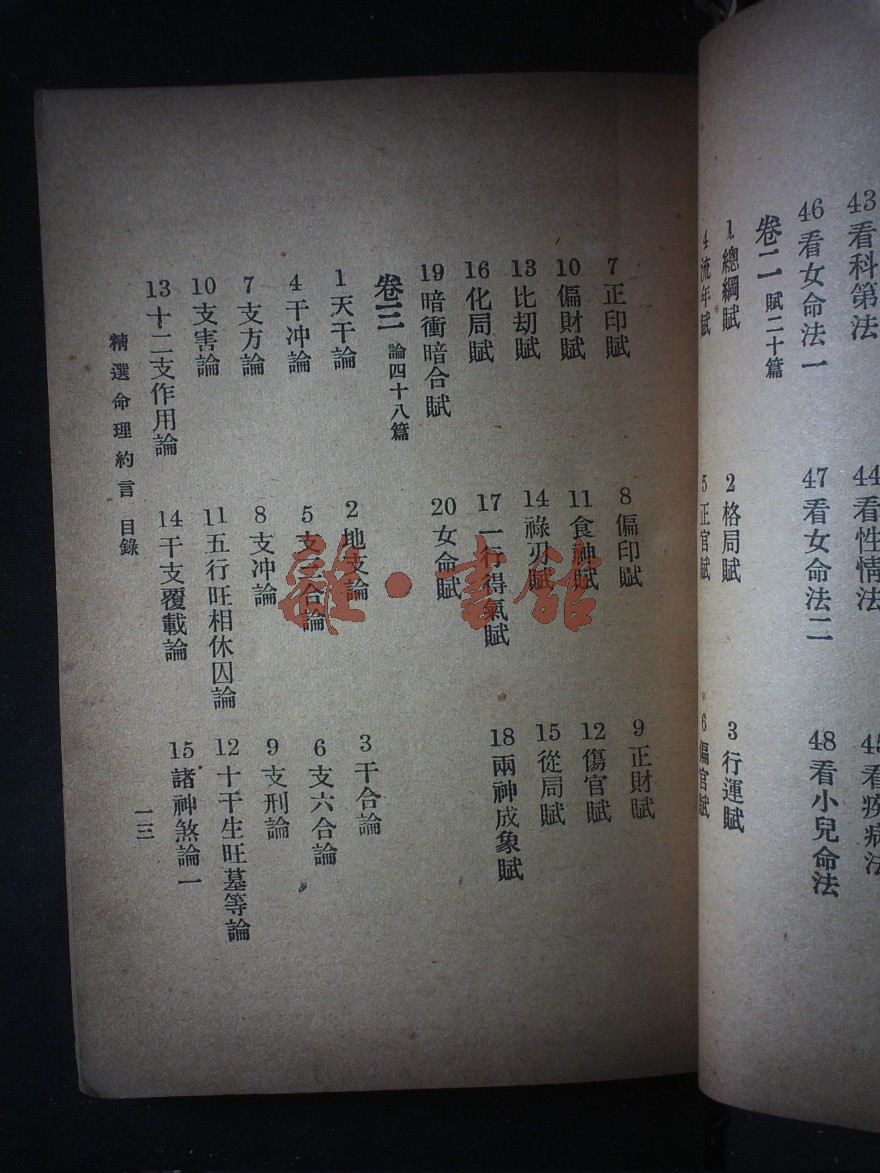 43看科第法 44看性情法 45看疾病法
46看女命法一 47看女命法二 48看小兒命法
卷二 賦二十篇
1總綱賦 2格局賦 3行運賦
4流年賦 5正官賦 6偏官賦
7正印賦 8偏印賦 9正財賦
10偏財賦 11食神賦 12傷官賦
13比刧賦 14祿刃賦 15從局賦
16化局賦 17一行得氣賦 18兩神成象賦
19暗衝暗合賦 20女命賦
卷三 論四十八篇
1天干論 2地支論 3干合論
4干冲論 5支三合論 6支六合論
7支方論 8支冲論 9支刑論
10支害論 11五行旺相休囚論 12十干生旺墓等論
13十二支作用論 14干支覆載論 15諸神煞論一
精選命理約言 目錄 一三
雜·書館